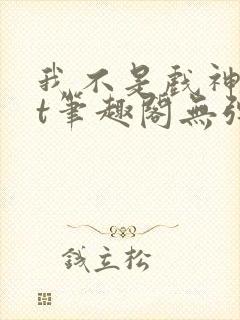 我不是戲神
t筆趣閣無
錢立松